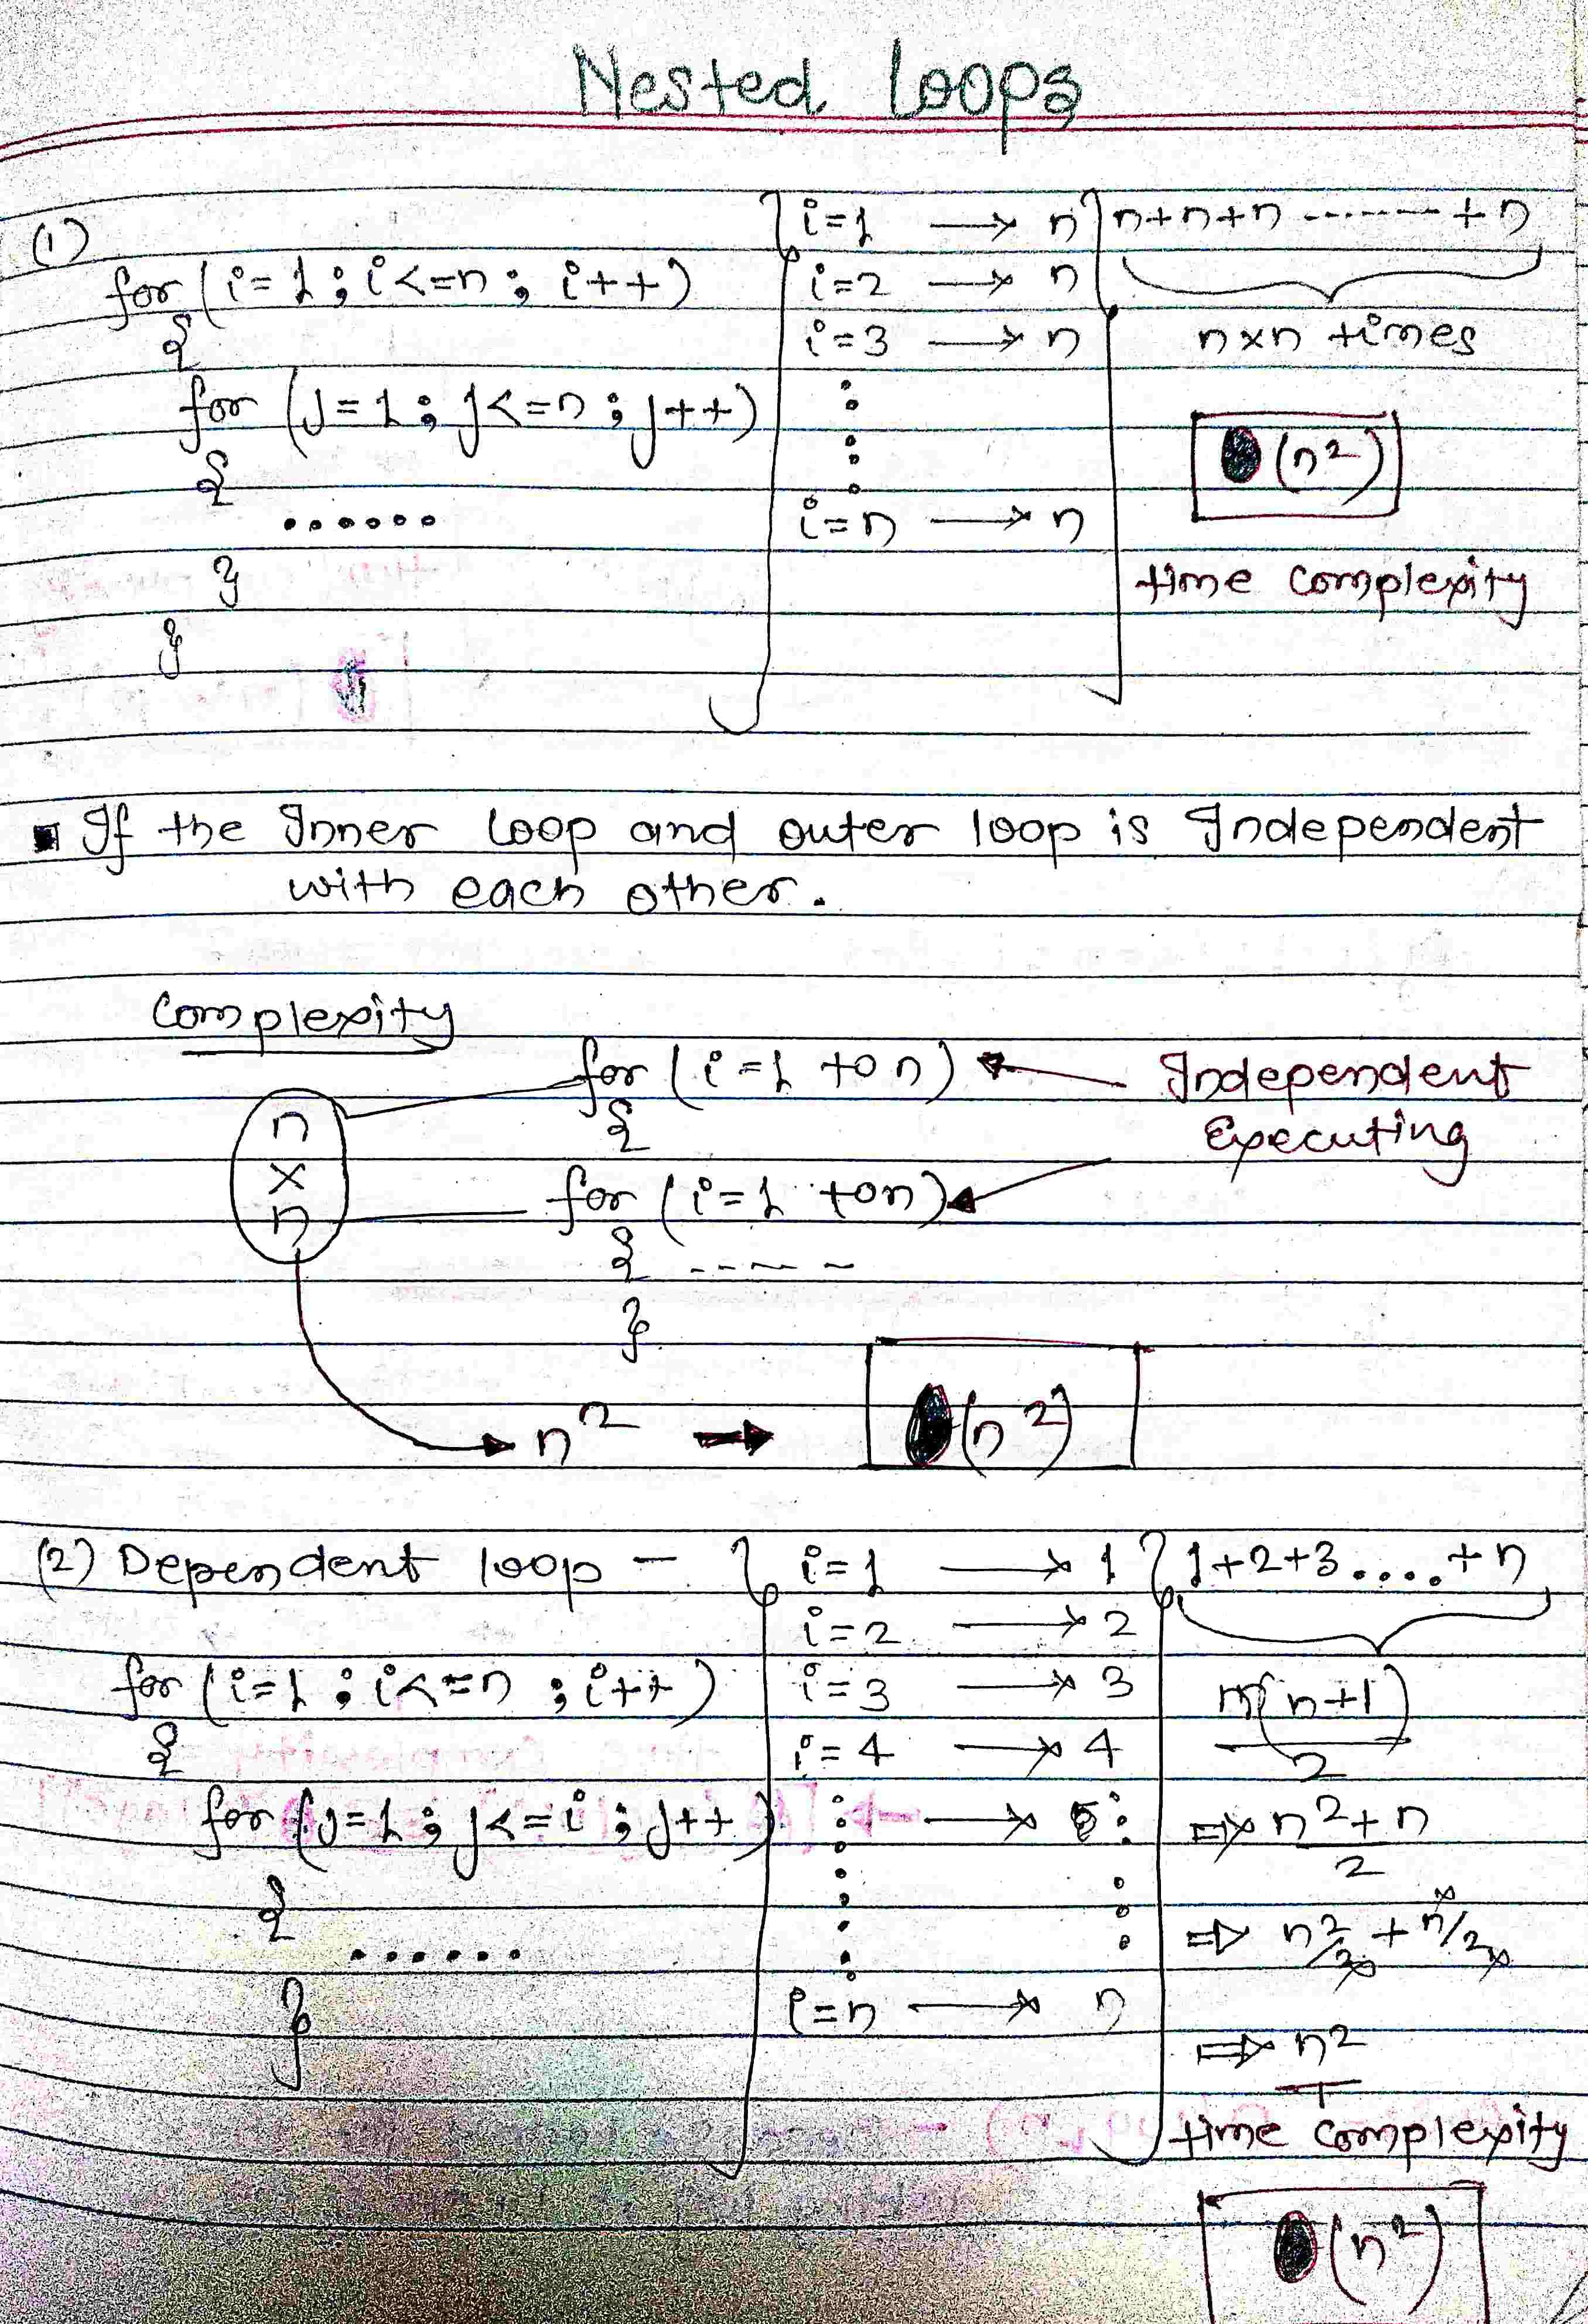 Nested Loops
(1)
for (i=1 ; i<=n ; i++)
{
for (j=1 ; j<=n ; j++)
{
......
}
}
i=1 → n
i=2 → n
i=3 → n
i=n → n
n+n+n ------- +n
n×n times
(n²)
time complexity
▪ If the Inner loop and outer loop is Independent
with each other.
Complexity
n
×
n
for (i=1 to n)
{
for (i=1 to n)
{ -----
}
Independent
Executing
n² → (n²)
(2) Dependent loop -
for (i=1 ; i<=n ; i++)
{
for (j=1 ; j<=i ; j++)
{
......
}
i=1 → 1
i=2 → 2
i=3 → 3
i=4 → 4
→ 5
i=n → n
1+2+3....+n
n(n+1)
2
⇒ n²+n
2
⇒ n²/2 + n/2
⇒ n²
time complexity
(n²)